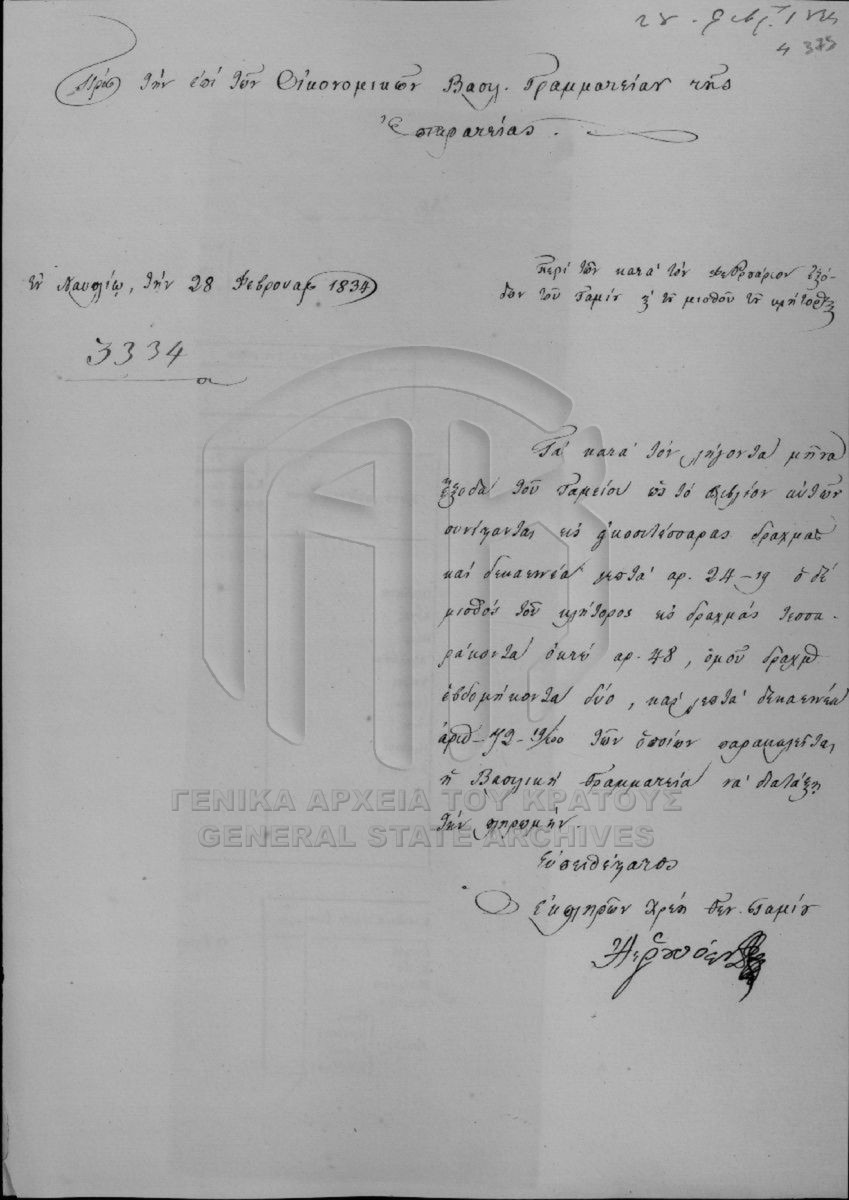 28 Φεβρ.
4 375
Πρὸς τὴν ἐπὶ τῶν Οἰκονομικῶν Βασιλ. Γραμματείαν τῆς
Ἐπικρατείας.
Ἐν Ναυπλίῳ, τὴν 28 Φεβρουαρ 1834
Περὶ τῶν κατὰ τὸν Φεβρουάριον ἐξό-
δων τοῦ Ταμείου τοῦ μισθοῦ τοῦ κλήτορος
3334
Τὰ κατὰ τὸν λήγοντα μῆνα
ἔξοδα τοῦ Ταμείου τὸ βιβλίον αὐτῶν
συνίστανται εἰς εἰκοσιτέσσαρας δραχμὰς
καὶ δεκαεννέα λεπτὰ ἀρ. 24-19 ὁ δὲ
μισθὸς τοῦ κλήτορος εἰς δραχμὰς τεσσα-
ράκοντα ὀκτὼ ἀρ. 48, ὁμοῦ δραχμ
ἑβδομήκοντα δύο, καὶ λεπτὰ δεκαεννέα
ἀριθ-72-19/100 τῶν ὁποίων παρακαλεῖται
ἡ Βασιλικὴ Γραμματεία νὰ διατάξῃ
τὴν πληρωμήν.
Εὐπειθέστατος
Ὁ ἐκπληρῶν χρέη Γεν. Ταμίου
ΓΕΝΙΚΑ ΑΡΧΕΙΑ ΤΟΥ ΚΡΑΤΟΥΣ
GENERAL STATE ARCHIVES